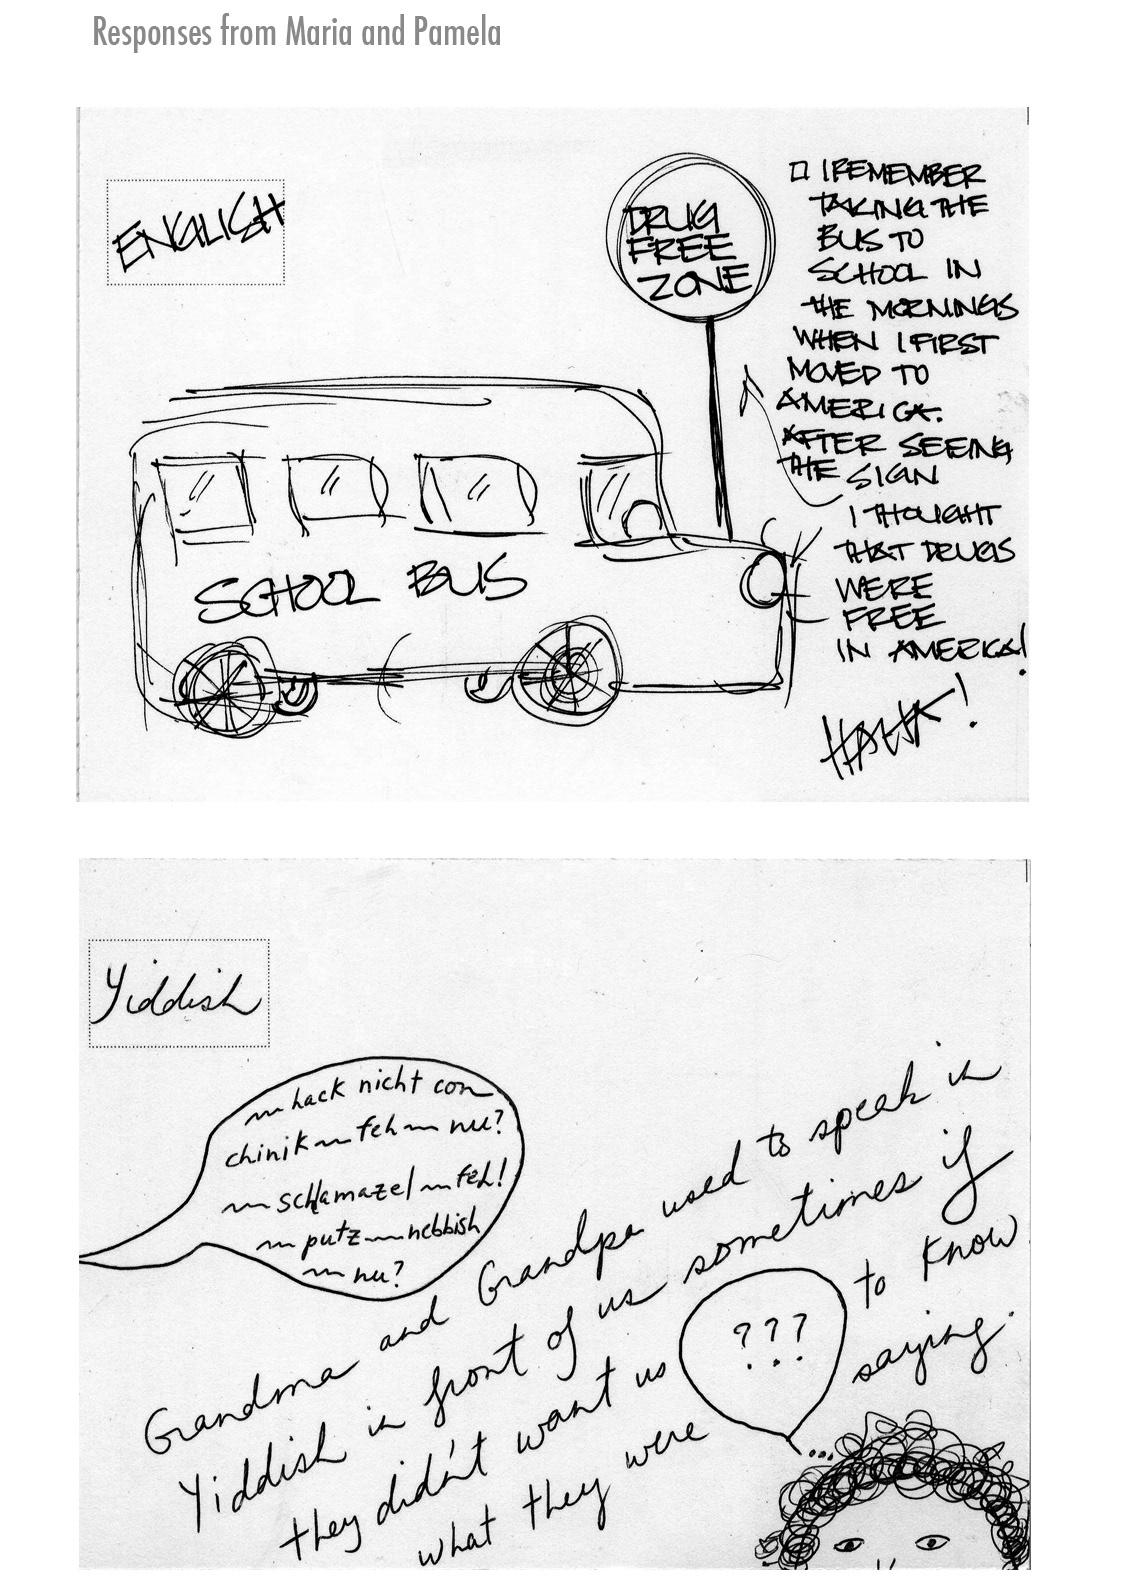 Responses from Maria and Pamela
ENGLISH
DRUG
FREE
ZONE
I REMEMBER
TAKING THE
BUS TO
SCHOOL IN
THE MORNINGS
WHEN I FIRST
MOVED TO
AMERICA.
AFTER SEEING
THE SIGN
I THOUGHT
THAT DRUGS
WERE
FREE
IN AMERICA!
SCHOOL BUS
Yiddish
hack nicht con
chinik feh nu?
schlamazel feh!
putz nebbish
nu?
Grandma and Grandpa used to speak in
Yiddish in front of us sometimes if
they didn't want us to know
what they were saying.
???